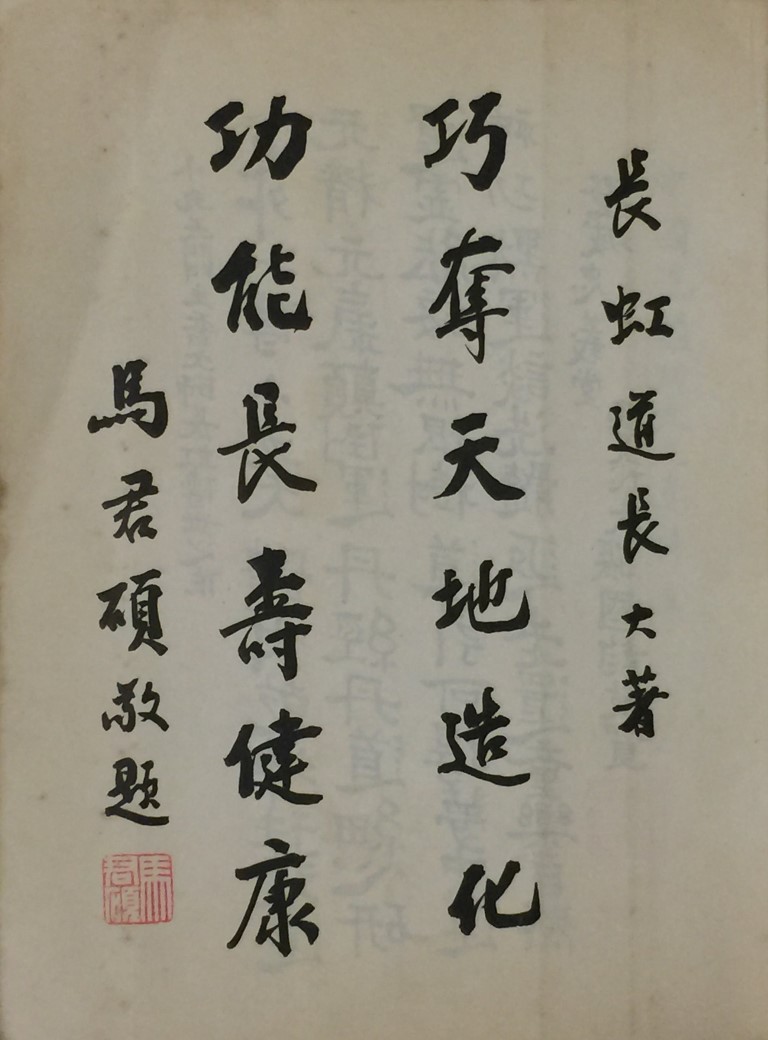 長虹道長大著
巧奪天地造化
功能長壽健康
馬君碩敬題
馬君碩